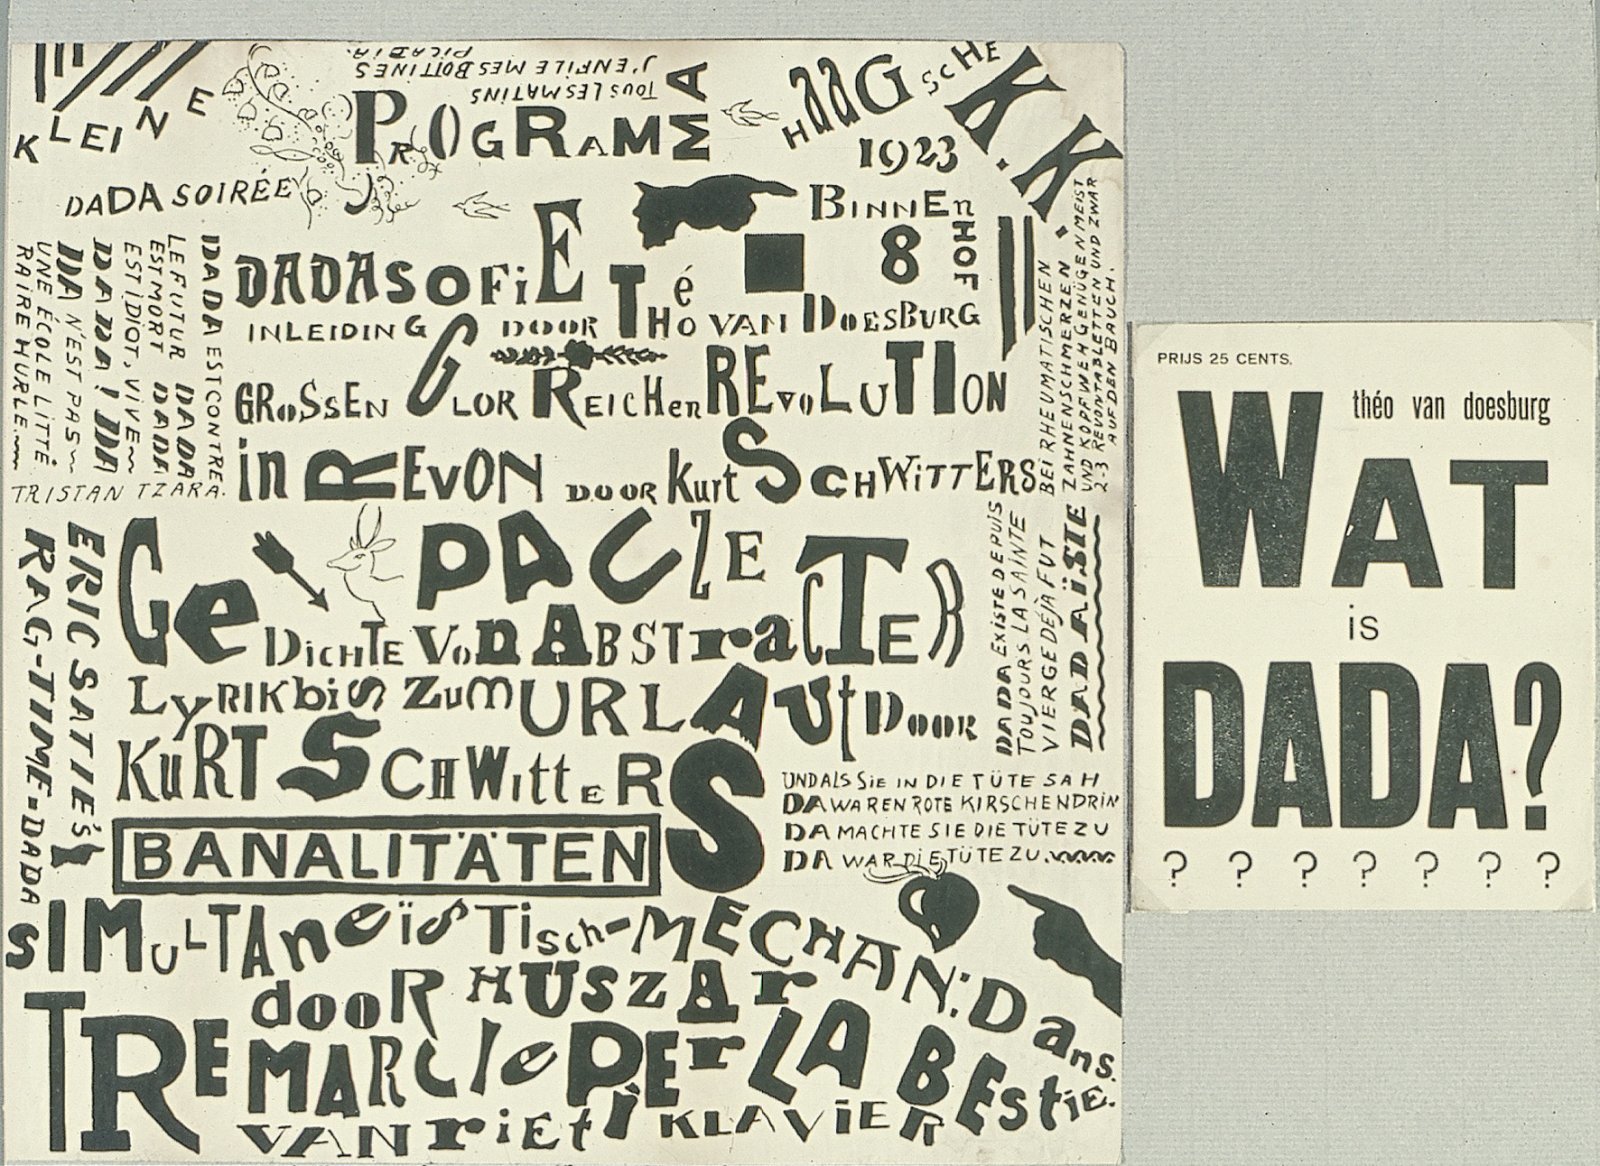 KLEINE
DADA SOIRÉE
TOUS LES MATINS
J'ENFILE MES BOTTINES
PICABIA.
PROGRAMMA
HAAGSCHE K.K.
1923
BINNENHOF 8
DADASOFIE
INLEIDING DOOR THéo VAN DOESBURG
GROSSEN GLORREICHEn REvoLUTION
in REVON DOOR Kurt SCHWITTERS
PAUZE
GeDICHTE VOn ABSTraCTER
LyRIK biS ZumURLAUt DOOR
KuRT SCHWittERS
BANALITÄTEN
SIMULTAneïsTisch-MECHAN: Dans.
dooR HUSZAr
TRE MARCIe PEr LA BEStiE.
VAN riEti KLAVIER
DADA EST CONTRE
LE FUTUR DADA
EST MORT DADA
EST IDIOT, VIVE
DADA! DA
DA N'EST PAS
UNE ÉCOLE LITTÉ
RAIRE HURLE
TRISTAN TZARA.
ERIC SATIE'S
RAG-TIME-DADA
BEI RHEUMATISCHEN
ZAHNENSCHMERZEN
UND KOPFWEH GENÜGEN MEIST
2-3 REVONTABLETTEN UND ZWAR
AUF DEN BAUCH.
DADA EXISTE DEPUIS
TOUJOURS LA SAINTE
VIERGE DÉJÀ FUT
DADAÏSTE
UND ALS SiE IN DIE TÜTE SAH
DA WAREN ROTE KIRSCHEN DRIN
DA MACHTE SIE DIE TÜTE ZU
DA WAR DIE TÜTE ZU.
PRIJS 25 CENTS.
théo van doesburg
WAT
is
DADA?
? ? ? ? ? ? ?